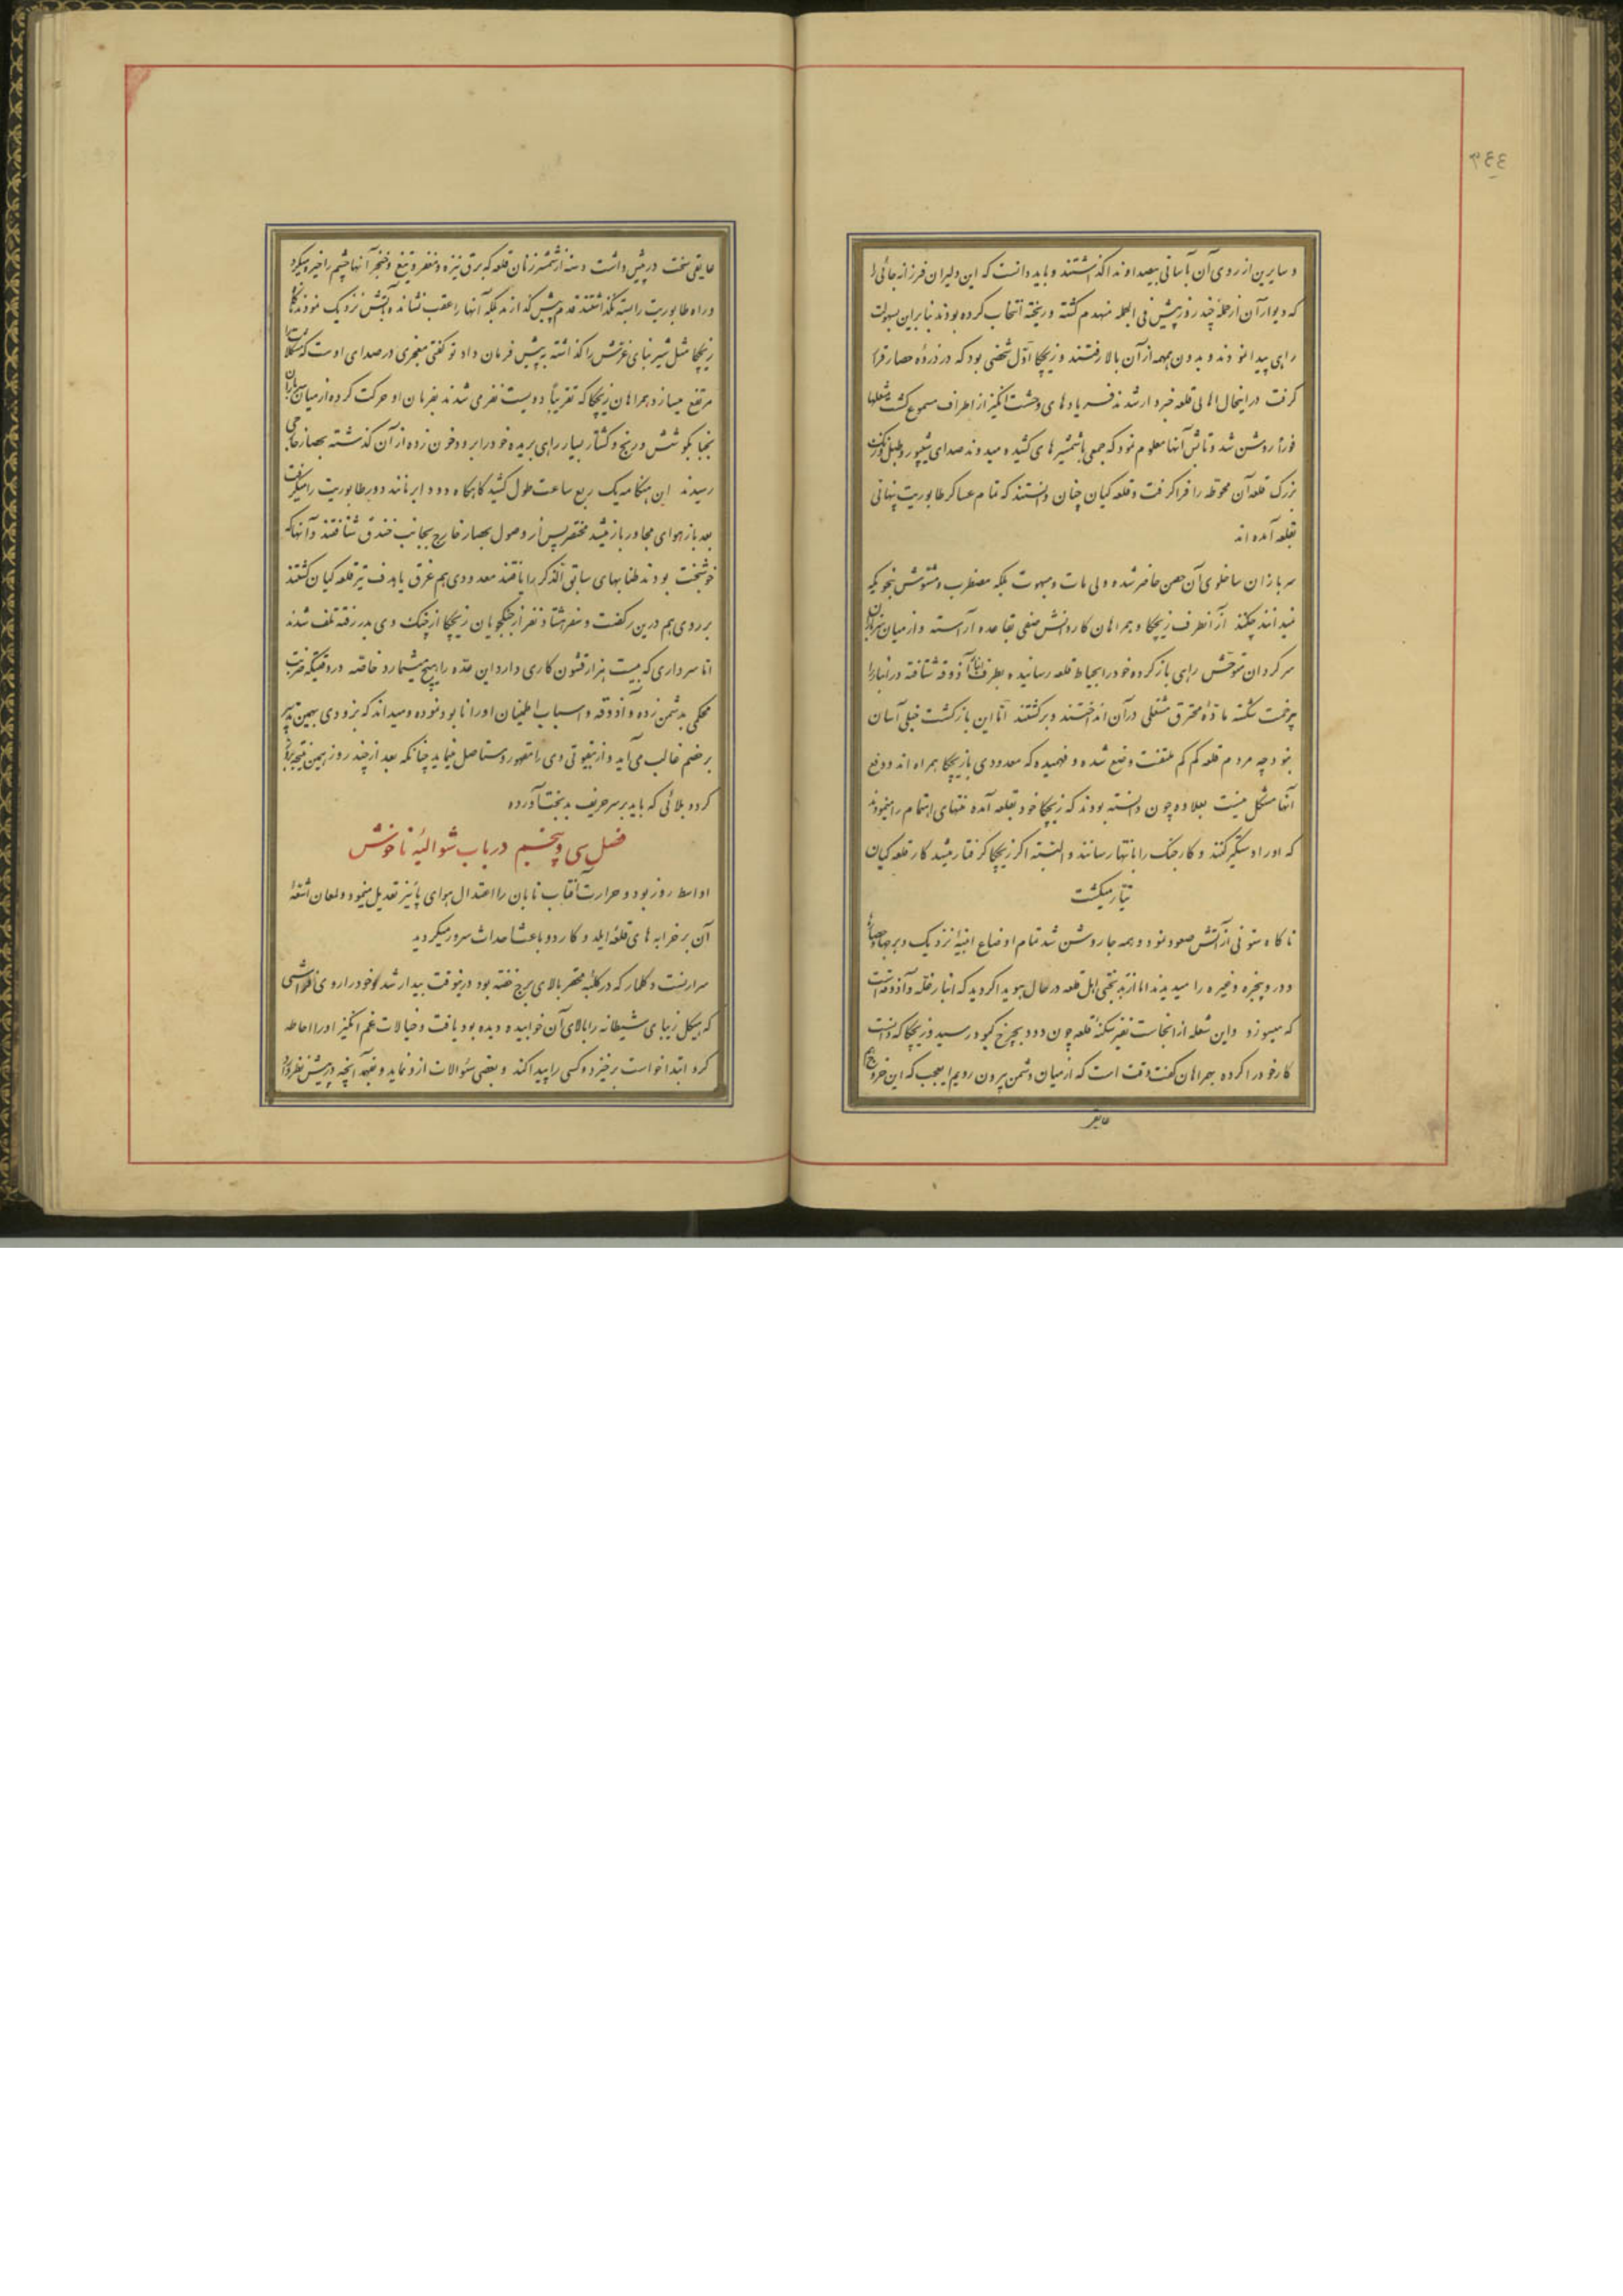 ۳٤٤
و سایرین از روی آن بآسانی بیصدا و ندا گذشتند و باید دانست که این دلیران فرزانه جائی را
که دیوار آن از حملهٔ چند روز پیش فی الجمله منهدم گشته و ریخته انتخاب کرده بودند بنابراین بسهولت
راهی پیدا نمودند و بدون همهمه از آن بالا رفتند و زیچکا اول شخصی بود که در ذروهٔ حصار قرار
گرفت در اینحال اهالی قلعه خبردار شدند فریادهای وحشت انگیز از اطراف مسموع گشت مشعلها
فوراً روشن شد و تابش آنها معلوم نمود که جمعی با شمشیرهای کشیده میدوند صدای شیپور و طبل
بزرک قلعه آن محوطه را فرا گرفت و قلعه کیان چنان دانستند که تمام عساکر طابوریت پنهانی
بقلعه آمده اند
سربازان ساخلوی آن حصن حاضر شده ولی مات و مبهوت بلکه مضطرب و مشوش بنحویکه
نمیدانند چکنند از آنطرف زیچکا و همراهان کاردانش صفی بقاعده آراسته و از میان سربازان
سرکردان متوحش راهی باز کرده خود را بحیاط قلعه رسانیده بطرف انبار آذوقه شتافته در انبار را
بزحمت شکسته مادهٔ محترق مشتعلی در آن انداختند و برگشتند اما این بازگشت خیلی آسان
نبود چه مردم قلعه کم کم ملتفت وضع شده و فهمیده که معدودی با زیچکا همراه اند و دفع
آنها مشکل نیست بعلاوه چون دانسته بودند که زیچکا خود بقلعه آمده منتهای اهتمام را مینمودند
که او را دستگیر کنند و کار جنک را بانتها رسانند و البته اگر زیچکا گرفتار میشد کار قلعه کیان
تباه میگشت
ناگاه ستونی از آتش صعود نمود و همه جا روشن شد تمام اوضاع ابنیهٔ نزدیک و برجها و حصارهای
دور و پنجره و غیره را میدیدند اما از بدبختی اهل قلعه در حال هویدا گردید که انبار غله و آذوقه است
که میسوزد و این شعله از انجاست نفیر سکنهٔ قلعه چون دود بچرخ کبود رسید و زیچکا که دانست
کار خود را کرده بهمراهان گفت وقت است که از میان دشمن بیرون رویم اما عجب که این خروج هم
عایق
عایقی سخت در پیش داشت دسته از شمشیرزنان قلعه که برق نیزه و مغفر و تیغ و خنجر آنها چشم را خیره میکرد
در راه طابوریت را بسته نگذاشتند قدم پیش گذارند بلکه آنها را عقب نشانده بآتش نزدیک نمودند
زیچکا مثل شیر بنای غرش را گذاشته به پیش فرمان داد تو گفتی معجزی در صدای اوست که مشکلات را
مرتفع میسازد همراهان زیچکا که تقریباً دویست نفری شدند بفرمان او حرکت کرده از میان سربازان
بکوشش و رنج و کشتار بسیار راهی بریده خود را برود خون زده از آن گذشته بحصار خارجی
رسیدند این هنگامه یک ربع ساعت طول کشید گاهگاه دود ابر مانند دور طابوریت را میگرفت
بعد باز هوای مجاور باز میشد مختصر پس از وصول بحصار خارج بجانب خندق شتافتند و آنها که
خوشبخت بودند طنابهای سابق الذکر را یافتند معدودی هم غرق یا هدف تیر قلعه کیان گشتند
بر روی هم در این رکضت و سفر هشتاد نفر از جنگجویان زیچکا از چنک وی بدر رفته تلف شدند
اما سرداری که بیست هزار قشون کاری دارد این عده را هیچ میشمارد خاصه در وقتیکه ضربت
محکمی بدشمن زده و آذوقه و اسباب اطمینان او را نابود نموده و میداند که بزودی بهمین تدبیر
بر خصم غالب می آید و از بیقوتی وی را مقهور و مستاصل مینماید چنانکه بعد از چند روز همین نتیجه بروز
کرد و بلائی که باید بر سر حریف بدبخت آورده
فصل سی و پنجم در باب شوالیهٔ ناخوش
اواسط روز بود و حرارت آفتاب تابان را اعتدال هوای پائیز تعدیل مینمود و لمعان اشعهٔ
آن بر خرابه های قلعهٔ ایلد و کاردو باعث احداث سرور میگردید
سر ارنست دکلمار که در کلبهٔ محقر بالای برج خفته بود درینوقت بیدار شد خود را روی فراشی
که هیکل زیبای شیطانه را بالای آن خوابیده دیده بود یافت و خیالات غم انگیز او را احاطه
کرد ابتدا خواست برخیزد و کسی را پیدا کند و بعضی سئوالات ازو نماید و بفهمد آنچه در پیش نظر او